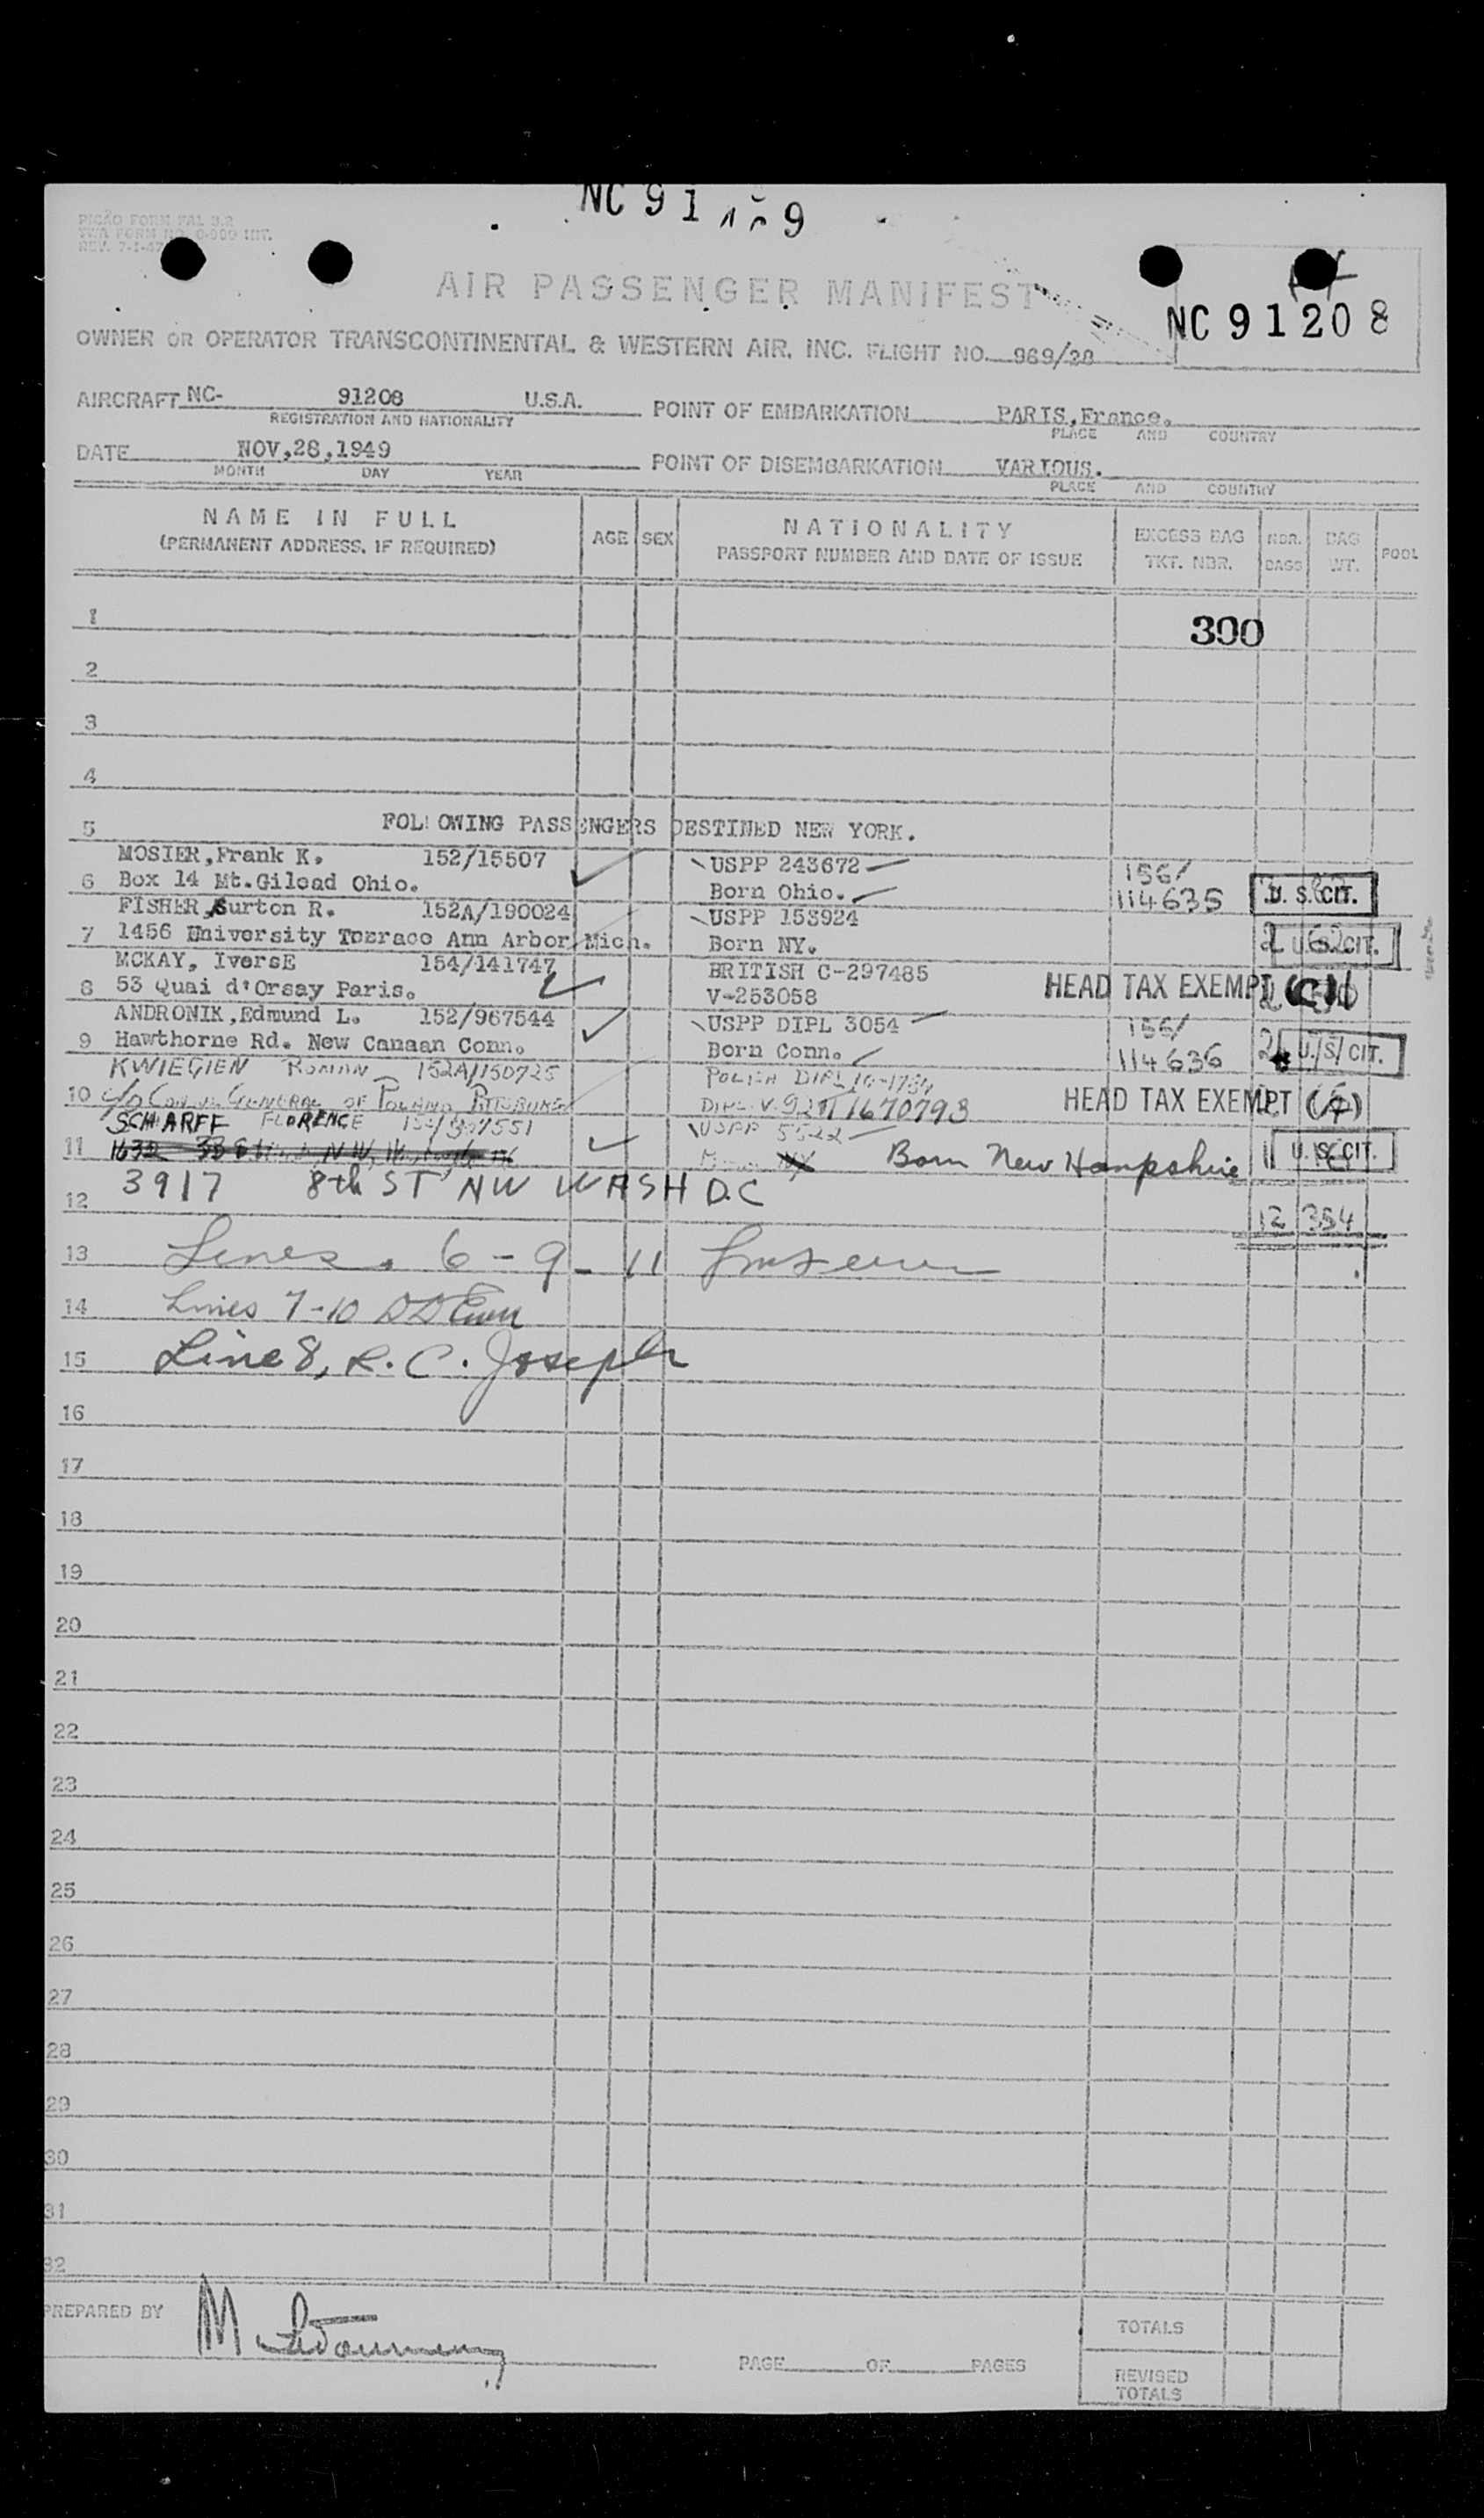 NC 91 9
PICAO FORM PAL 9.2
TWA FORM NO. 0-009 INT.
REV. 7-1-47
AIR PASSENGER MANIFEST
NC 91208
OWNER OR OPERATOR TRANSCONTINENTAL & WESTERN AIR, INC. FLIGHT NO. 969/28
AIRCRAFT NC- 91208 U.S.A. POINT OF EMBARKATION PARIS,France.
REGISTRATION AND NATIONALITY PLACE AND COUNTRY
DATE NOV,28,1949 POINT OF DISEMBARKATION VARIOUS.
MONTH DAY YEAR PLACE AND COUNTRY
NAME IN FULL AGE SEX NATIONALITY EXCESS BAG NBR. BAG POOL
(PERMANENT ADDRESS, IF REQUIRED) PASSPORT NUMBER AND DATE OF ISSUE TKT. NBR. BAGS WT.
1 300
2
3
4
5 FOLLOWING PASSENGERS DESTINED NEW YORK.
MOSIER,Frank K. 152/15507 USPP 243672 156/
6 Box 14 Mt.Gilead Ohio. Born Ohio. 114635 U. S. CIT.
FISHER,Burton R. 152A/190024 USPP 153924
7 1456 University Terrace Ann Arbor Mich. Born NY. 2 U. S. CIT.
MCKAY, IversE 154/141747 BRITISH C-297485
8 53 Quai d'Orsay Paris. V-253058 HEAD TAX EXEMPT
ANDRONIK,Edmund L. 152/967544 USPP DIPL 3054 156/
9 Hawthorne Rd. New Canaan Conn. Born Conn. 114636 2 U. S. CIT.
KWIECIEN ROMAN 152A/150725 POLISH DIPL
10 c/o CONSUL GENERAL OF POLAND, DIPL. V. 1670793 HEAD TAX EXEMPT
SCHARFF FLORENCE USPP 5522
11 1632 Born New Hampshire U. S. CIT.
3917 8th ST NW WASH D.C
12 12 354
13 Lines. 6-9-11
14 Lines 7-10
15 Line 8, R. C. Joseph
16
17
18
19
20
21
22
23
24
25
26
27
28
29
30
31
32
PREPARED BY M TOTALS
PAGE OF PAGES REVISED TOTALS